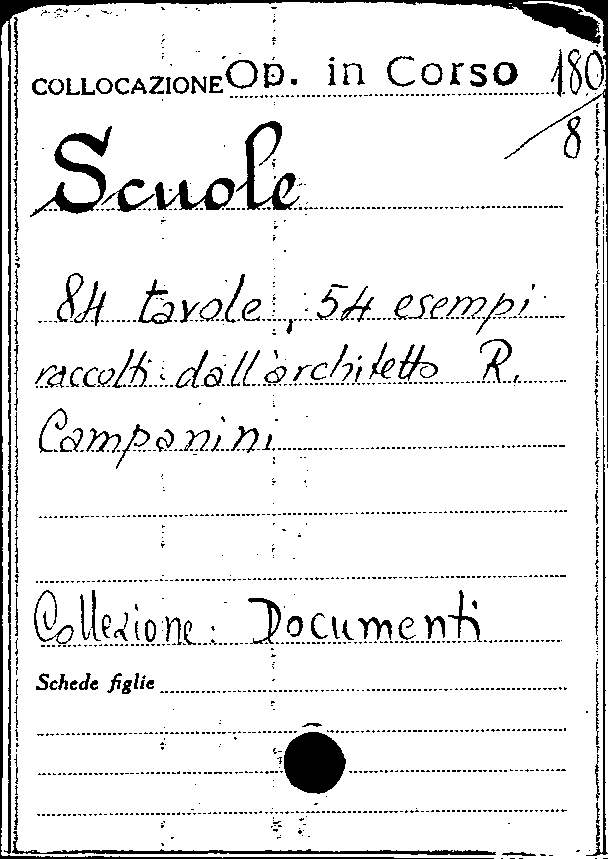 COLLOCAZIONE Op. in Corso 180/8
Scuole
84 tavole, 54 esempi
raccolti dall'architetto R.
Campanini
Collezione: Documenti
Schede figlie